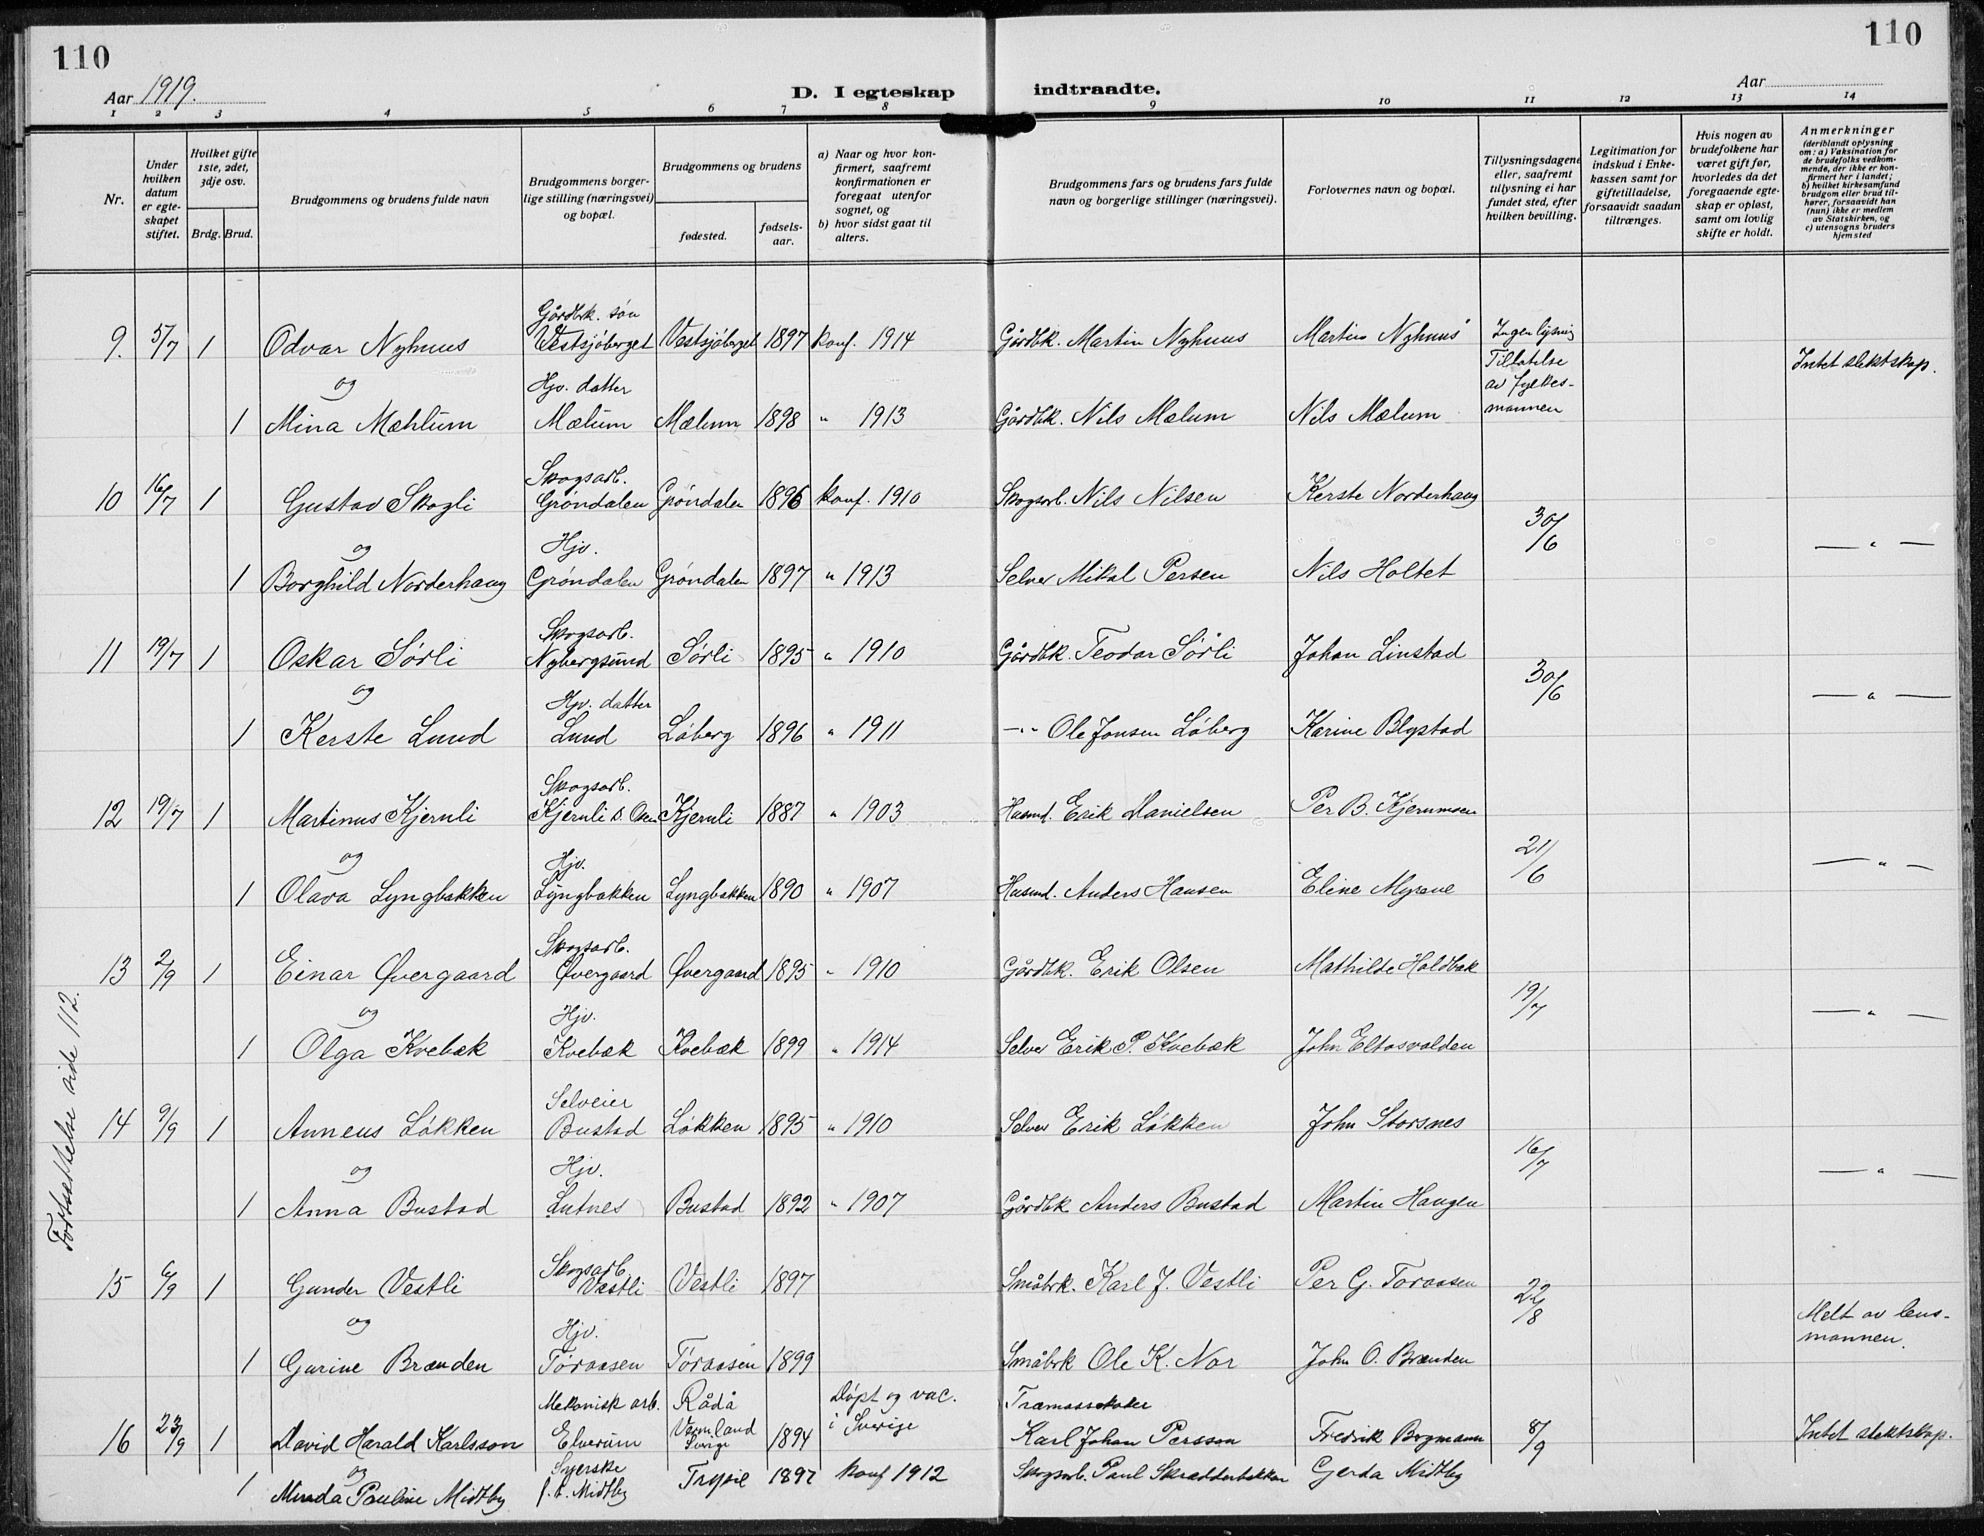 110
110
Aar 1919.
D. I egteskap indtraadte.
Aar
1 2 3 4 5 6 7 8 9 10 11 12 13 14
Nr.
Under hvilken datum er egteskapet stiftet.
Hvilket gifte 1ste, 2det, 3dje osv.
Brdg. Brud.
Brudgommens og brudens fulde navn
Brudgommens borgerlige stilling (næringsvei) og bopæl.
Brudgommens og brudens
fødested.
fødselsaar.
a) Naar og hvor konfirmert, saafremt konfirmationen er foregaat utenfor sognet, og
b) hvor sidst gaat til alters.
Brudgommens fars og brudens fars fulde navn og borgerlige stillinger (næringsvei).
Forlovernes navn og bopæl.
Tillysningsdagene eller, saafremt tillysning ei har fundet sted, efter hvilken bevilling.
Legitimation for indskud i Enkekassen samt for giftetilladelse, forsaavidt saadan tiltrænges.
Hvis nogen av brudefolkene har været gift før, hvorledes da det foregaaende egteskap er opløst, samt om lovlig skifte er holdt.
Anmerkninger (deriblandt oplysning om: a) Vaksination for de brudefolks vedkommende, der ikke er konfirmert her i landet; b) hvilket kirkesamfund brudgom eller brud tilhører, forsaavidt han (hun) ikke er medlem av Statskirken, og c) utensogns bruders hjemsted
Gårdbk. søn
9. 5/7 1 Odvar Nyhuus Vestsjøberget Vestsjøberget 1897 konf. 1914 Gårdbk. Martin Nyhuus Martin Nyhuus Ingen lysning
og Hjv. datter Tillatelse av fylkesmannen Intet slektskap.
1 Mina Mæhlum Mælum Mælum 1898 " 1913 Gårdbk. Nils Mælum Nils Mælum
Skogsarb.
10 16/7 1 Gustav Skogli Grøndalen Grøndalen 1896 konf. 1910 Skogsarb. Nils Nilsen Kerste Norderhaug
og Hjv. 30/6 — " —
1 Borghild Norderhaug Grøndalen Grøndalen 1897 " 1913 Selvei Mikal Persen Nils Holtet
Skogsarb.
11 19/7 1 Oskar Sørli Nybergsund Sørli 1895 " 1910 Gårdbk. Teodor Sørli Johan Linstad
og Hjv. datter 30/6 — " —
1 Kerste Lund Lund Løberg 1896 " 1911 —"— Ole Jonsen Løberg Karine Blystad
Skogsarb.
12 19/7 1 Martinus Kjernli Kjernli S. Osen Kjernli 1887 " 1903 Husmd. Erik Danielsen Per B. Kjernmoen
og Hjv. 21/6 — " —
1 Olava Lyngbakken Lyngbakken Lyngbakken 1890 " 1907 Husmd. Anders Hansen Eline Myrene
Skogsarb.
13 2/9 1 Einar Øvergaard Øvergaard Øvergaard 1895 " 1910 Gårdbk. Erik Olsen Mathilde Holdbak
og Hjv. 19/7 — " —
1 Olga Kvebæk Kvebæk Kvebæk 1899 " 1914 Selvei Erik P. Kvebæk John Eltosvolden
Selveier
14 9/9 1 Anneus Løkken Bustad Løkken 1895 " 1910 Selvei Erik Løkken John Storsnes
og Hjv. 16/7 — " —
1 Anna Bustad Lutnes Bustad 1892 " 1907 Gårdbk Anders Bustad Martin Haugen
Skogsarb.
15 6/9 1 Gunder Vestli Vestli Vestli 1897 Småbrk. Karl J. Vestli Per G. Toraasen
og Hjv. 22/8 Melt av lensmannen.
1 Gurine Brænden Toraasen Toraasen 1899 Småbrk Ole K. Nor John O. Brænden
Mekanisk arb. Rådå Døpt og vac.
16 23/9 1 David Harald Karlsson Elverum Värmland Sverige 1894 i Sverige Karl Johan Persson Fredrik Bogmann 8/9 Intet slektskap.
og Syerske
1 Minda Pauline Midtby f. t. Midtby Trysil 1897 konf 1912 Skogsarb. Paul Skrædderbakken Gerda Midtby
Fortsættelse side 112.